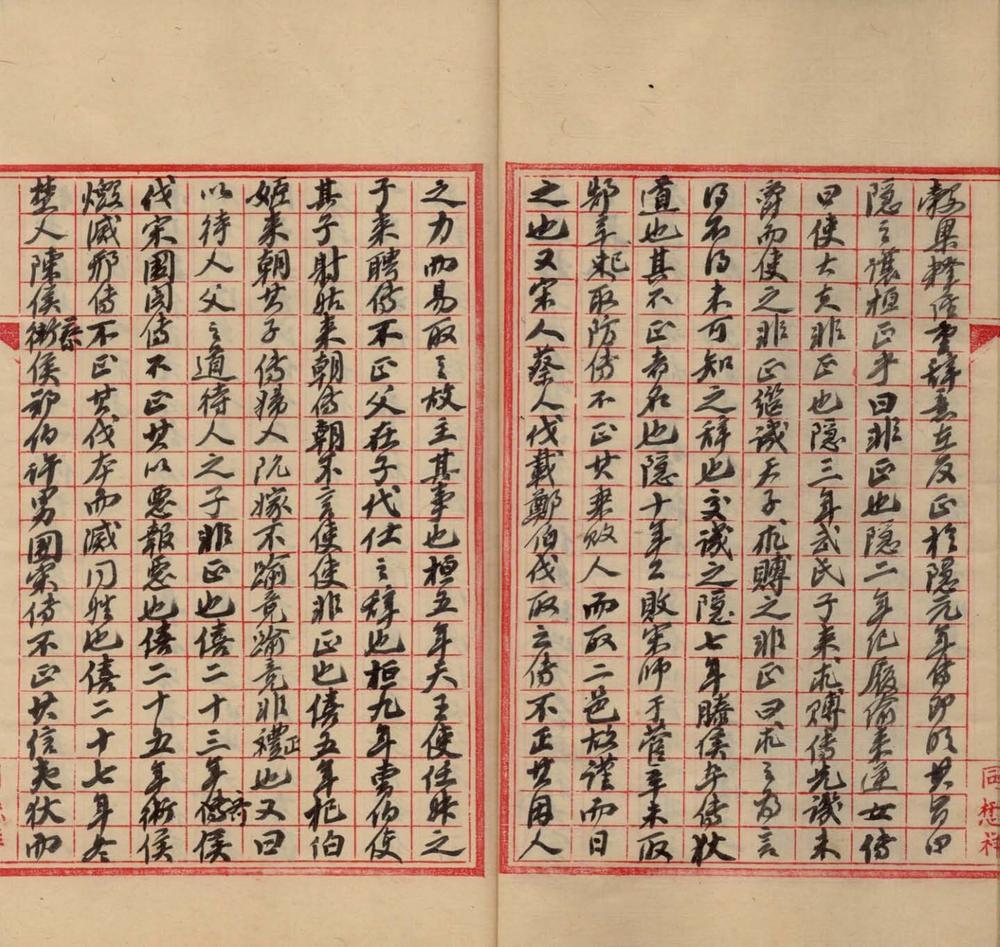 穀梁釋經重辭意在反正於隱元年傳即明其旨曰
隱之讓桓正乎曰非正也隱二年紀履緰來逆女傳
曰使大夫非正也隱三年武氏子來求賻傳先譏未
爵而使之非正繼譏天子求賻之非正曰求之為言
得不得未可知之辭也交譏之隱七年滕侯卒傳狄
道也其不正者名也隱十年公敗宋師于菅辛未取
郜辛巳取防傳不正其乘敗人而取二邑故謹而日
之也又宋人蔡人伐載鄭伯伐取之傳不正其因人
之力而易取之故主其事也桓五年天王使任叔之
子來聘傳不正父在子代仕之辭也桓九年曹伯使
其子射姑來朝傳朝不言使使非正也僖五年杞伯
姬來朝其子傳婦人既嫁不踰竟踰竟非禮正也又曰
以待人父之道待人之子非正也僖二十三年傳齊侯
伐宋圍閔傳不正其以惡報惡也僖二十五年衛侯
燬滅邢傳不正其伐本而滅同姓也僖二十七年冬
楚人陳侯衛蔡侯鄭伯許男圍宋傳不正其信夷狄而
同懋祥